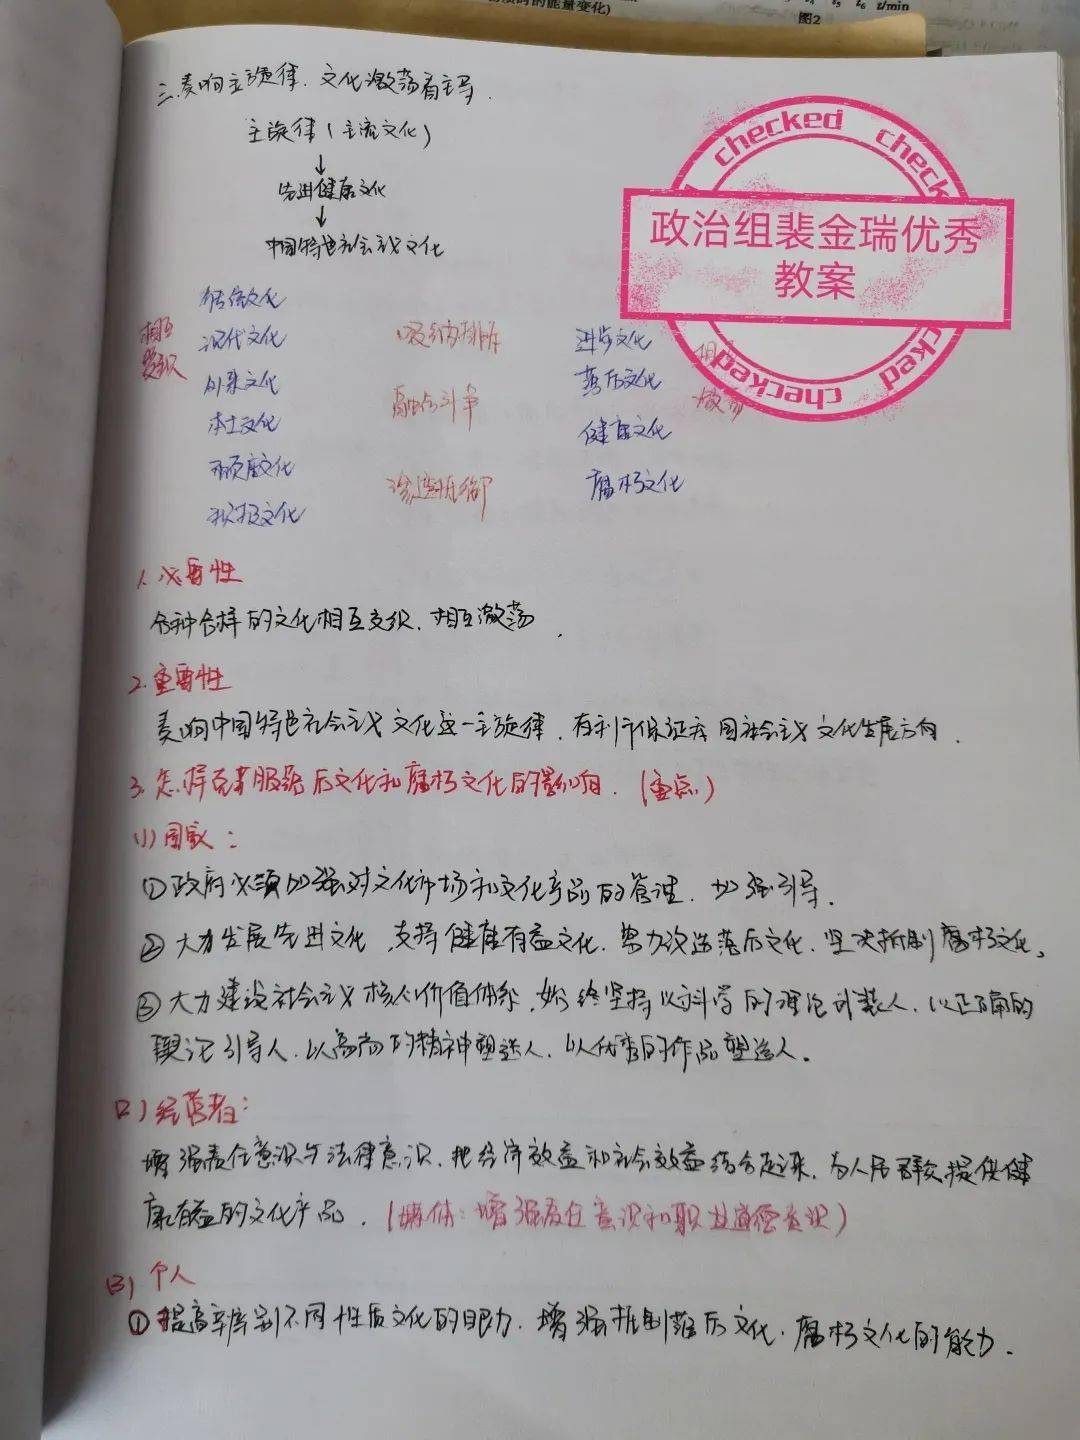 图2
z/min
三.奏响主旋律.文化激荡有主导.
主旋律(主流文化)
↓
先进健康文化
↓
中国特色社会主义文化
checked checked
政治组裴金瑞优秀
教案
checked
传统文化
相互 现代文化 吸纳与排斥 进步文化
交织 外来文化 融合与斗争 落后文化 激荡
本土文化 健康文化
颓废文化 渗透与抵御 腐朽文化
积极文化
1.必要性
各种各样的文化相互交织.相互激荡.
2.重要性
奏响中国特色社会主义文化这一主旋律.有利于保证我国社会主义文化发展方向.
3.怎样克服落后文化和腐朽文化的影响.(重点)
(1)国家:
①政府必须加强对文化市场和文化产品的管理.加强引导.
②大力发展先进文化.支持健康有益文化.努力改造落后文化.坚决抵制腐朽文化。
③大力建设社会主义核心价值体系.始终坚持以科学的理论武装人.以正确的
舆论引导人.以高尚的精神塑造人.以优秀的作品塑造人。
(2)经营者:
增强责任意识与法律意识.把经济效益和社会效益结合起来.为人民群众提供健
康有益的文化产品.(媒体:增强责任意识和职业道德意识)
(3)个人
①提高辨别不同性质文化的眼力.增强抵制落后文化.腐朽文化的能力.